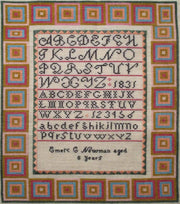 ABCDEFGH
IKLMNO
PQRSTUV
WXYZ 1831
ABCDEFGHI
KLMNOPQRSTUV
WXYZ 123456
abcdefghiklmno
pqrstuvwxyz
aged
8 Years